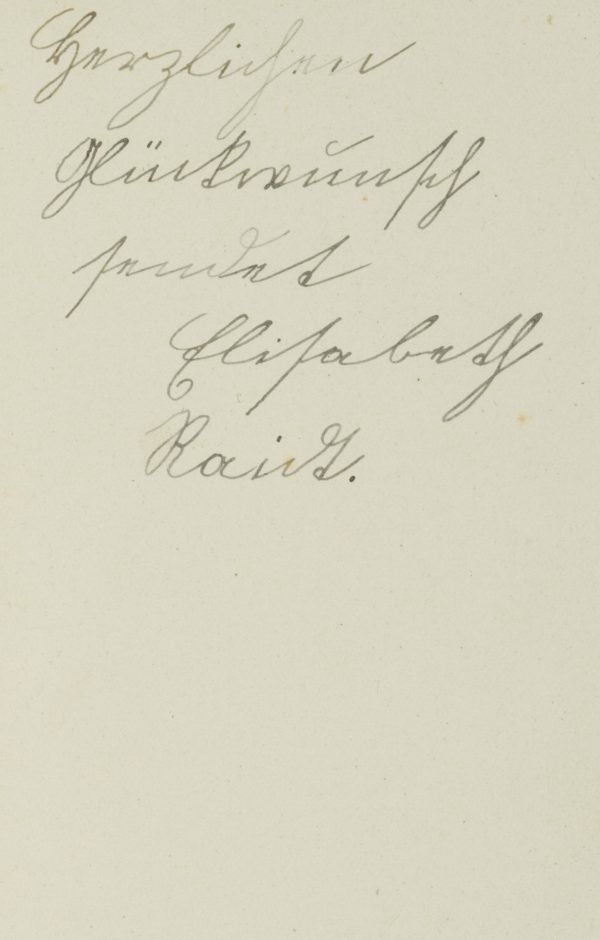 Herzlichen
Glückwunsch
sendet
Elisabeth
Raidt.